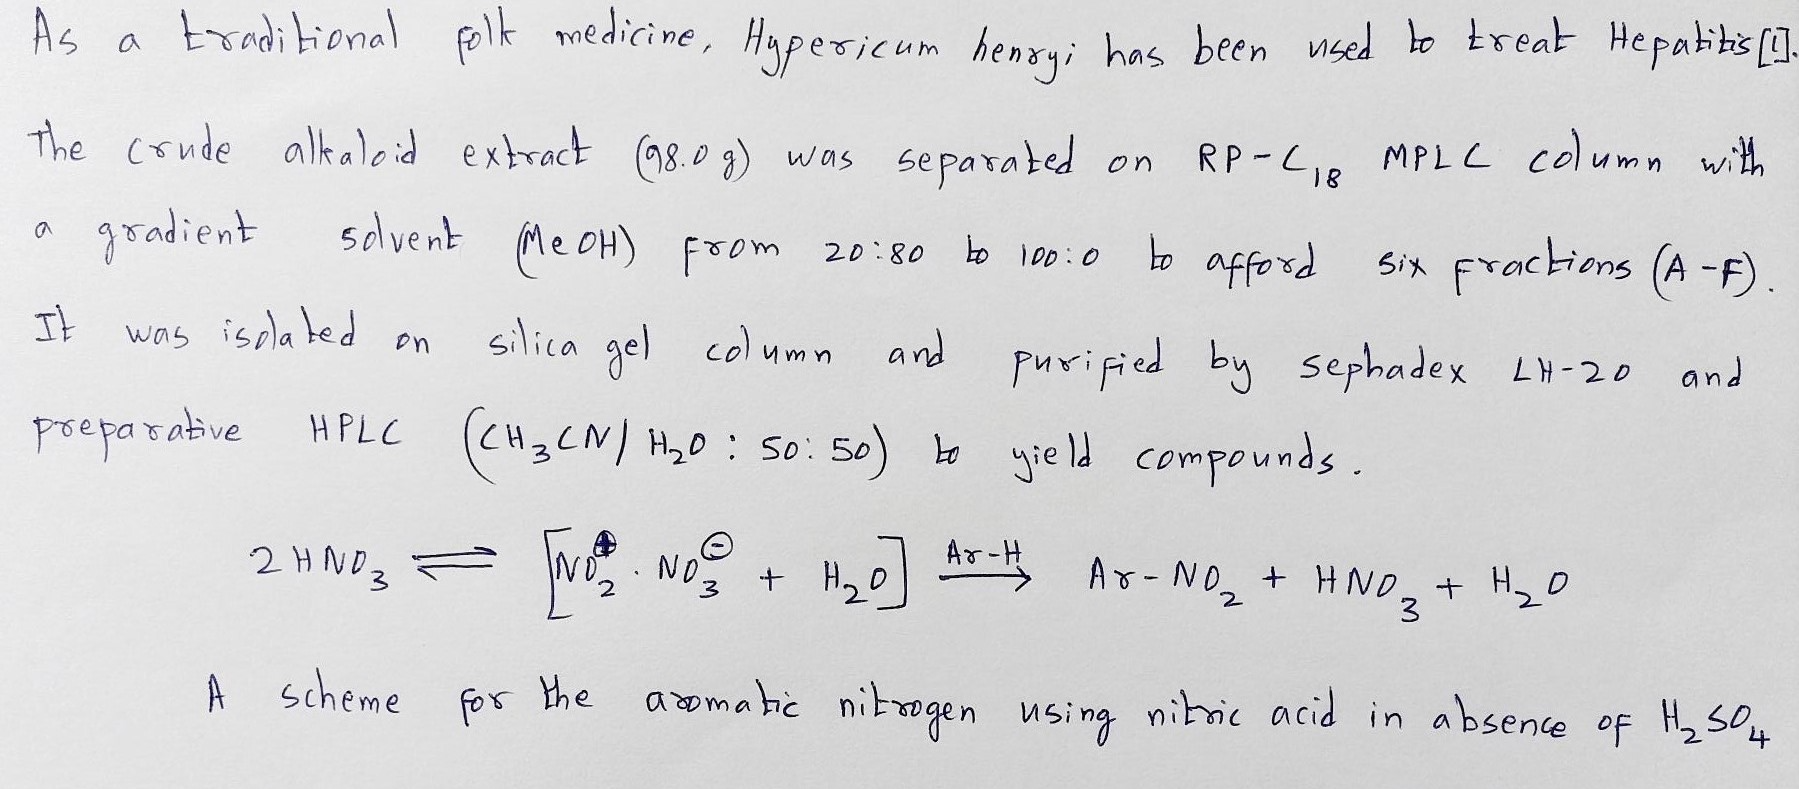 As a traditional folk medicine, Hypericum henryi has been used to treat Hepatitis [1].
The crude alkaloid extract (98.0 g) was separated on RP-C₁₈ MPLC column with
a gradient solvent (MeOH) from 20:80 to 100:0 to afford six fractions (A-F).
It was isolated on silica gel column and purified by sephadex LH-20 and
preparative HPLC (CH₃CN/H₂O : 50:50) to yield compounds.
2HNO₃ ⇌ [NO₂⊕ · NO₃⊖ + H₂O] Ar-H→ Ar-NO₂ + HNO₃ + H₂O
A scheme for the aromatic nitrogen using nitric acid in absence of H₂SO₄